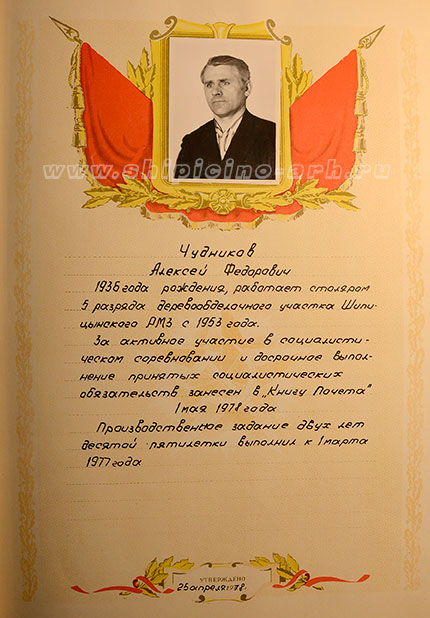 www.shipicino-arh.ru
Чудников
Алексей Федорович
1936 года рождения, работает столяром
5 разряда деревообделочного участка Шипи-
цынского РМЗ с 1953 года.
За активное участие в социалисти-
ческом соревновании и досрочное выпол-
нение принятых социалистических
обязательств занесен в „Книгу Почета"
1 мая 1978 года
Производственное задание двух лет
десятой пятилетки выполнил к 1 марта
1977 года
УТВЕРЖДЕНО
25 апреля 1978 г.